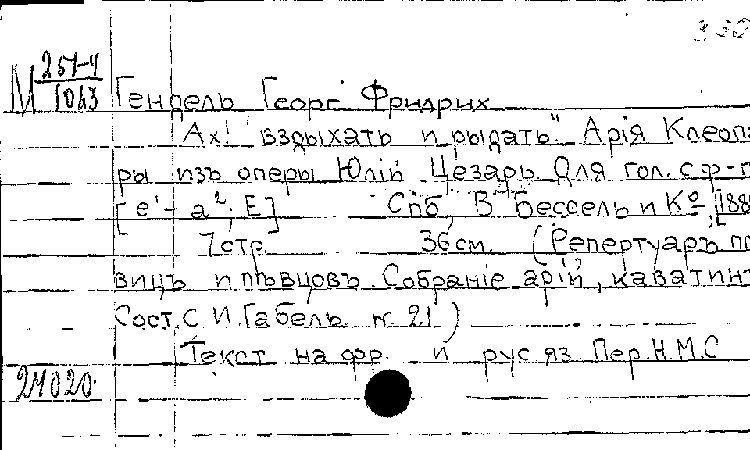 М 251-4
1063
Гендель Георг Фридрих
Ах! вздыхать и рыдать" Арія Клеопат
ры изъ оперы Юлій Цезарь Для гол. с ф-п
[e¹-a²; E] Спб, В Бессель и Kº, [188
7 стр. 36 см. (Репертуаръ пѣ
вицъ и пѣвцовъ. Собраніе арій, каватинъ
Сост. С И. Габель. № 21)
Текст на фр. и рус яз Пер. Н. М. С
24020